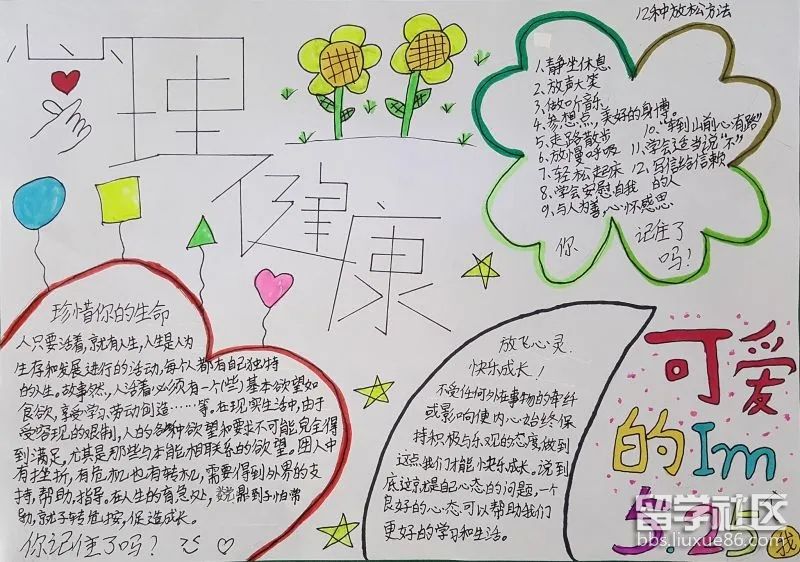 心理
健康
12种放松方法
1、静坐休息
2、放声大笑
3、做听音乐
4、参想点,美好的身博。
5、走路散步
6、放慢呼吸
7、轻松起床
8、学会安慰自我
9、与人为善,心怀感思
10、"车到山前心有路"
11、学会适当说"不"
12、写信给信赖
的人
你 记住了
吗?
珍惜你的生命
人只要活着,就有人生,人生是人为
生存和发展进行的活动,每个人都有自己独特
的人生。故事然,人活着必须有一个(些)基本欲望如
食欲,享受学习,劳动创造……等。在现实生活中,由于
受客现的艰制,人的各种欲望和要求不可能完全得
到满足,尤其是那些与本能相联系的欲望。困人中
有挫折,有危机也有转机,需要得到外界的支
持,帮助,指导。在人生的有急处,
就了转危
促造成长。
你记住了吗?
放飞心灵,
快乐成长!
不受任何外在事物的牵纤
或影响使内心始终保
持积极与乐观的态度,做到
这点我们才能快乐成长。说到
底这就是自己心态的问题,一个
良好的心态,可以帮助我们
更好的学习和生活。
可爱
的Im
5.25
我
留学社区
bbs.liuxue86.com